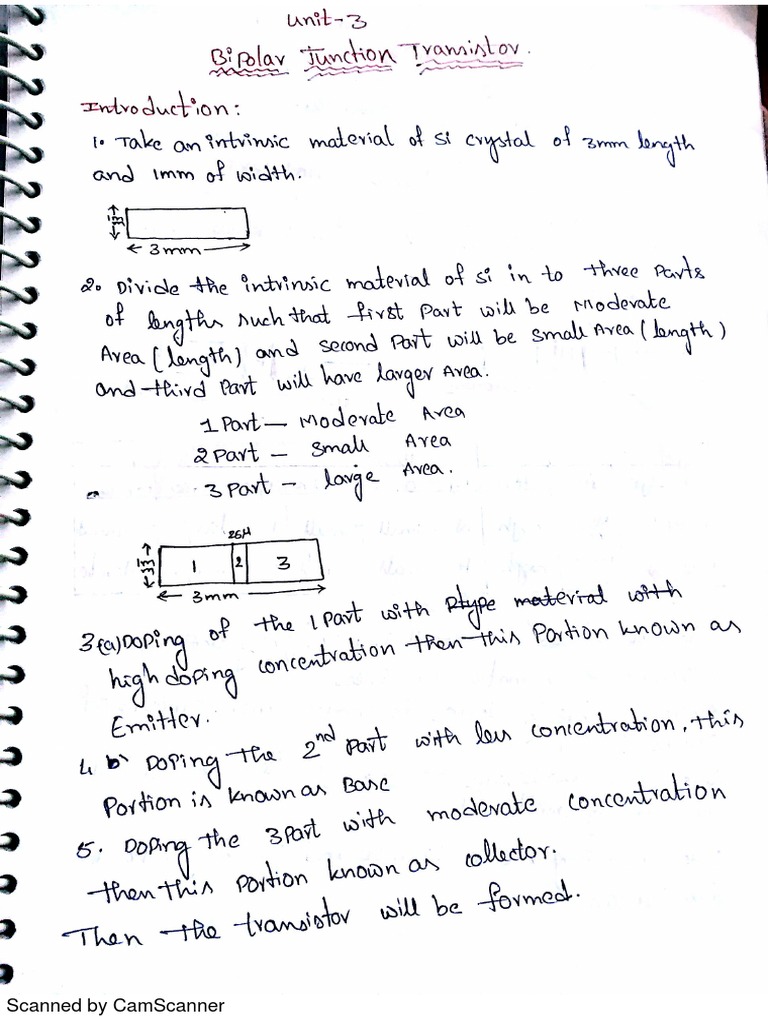 Unit-3
Bipolar Junction Transistor.
Introduction:
1. Take an intrinsic material of si crystal of 3mm length
and 1mm of width.
1mm
3mm
2. Divide the intrinsic material of si in to three Parts
of lengths such that first Part will be Moderate
Area (length) and second Part will be small Area (length)
and third Part will have larger Area.
1 Part — Moderate Area
2 Part — Small Area
3 Part — large Area.
25μ
1 2 3
3mm
3(a) Doping of the 1 Part with Ptype material with
high doping concentration then this Portion known as
Emitter.
4 b) Doping the 2nd Part with less concentration, this
Portion is known as Base
5. Doping the 3 Part with moderate concentration
then this Portion known as collector.
Then the transistor will be formed.
Scanned by CamScanner